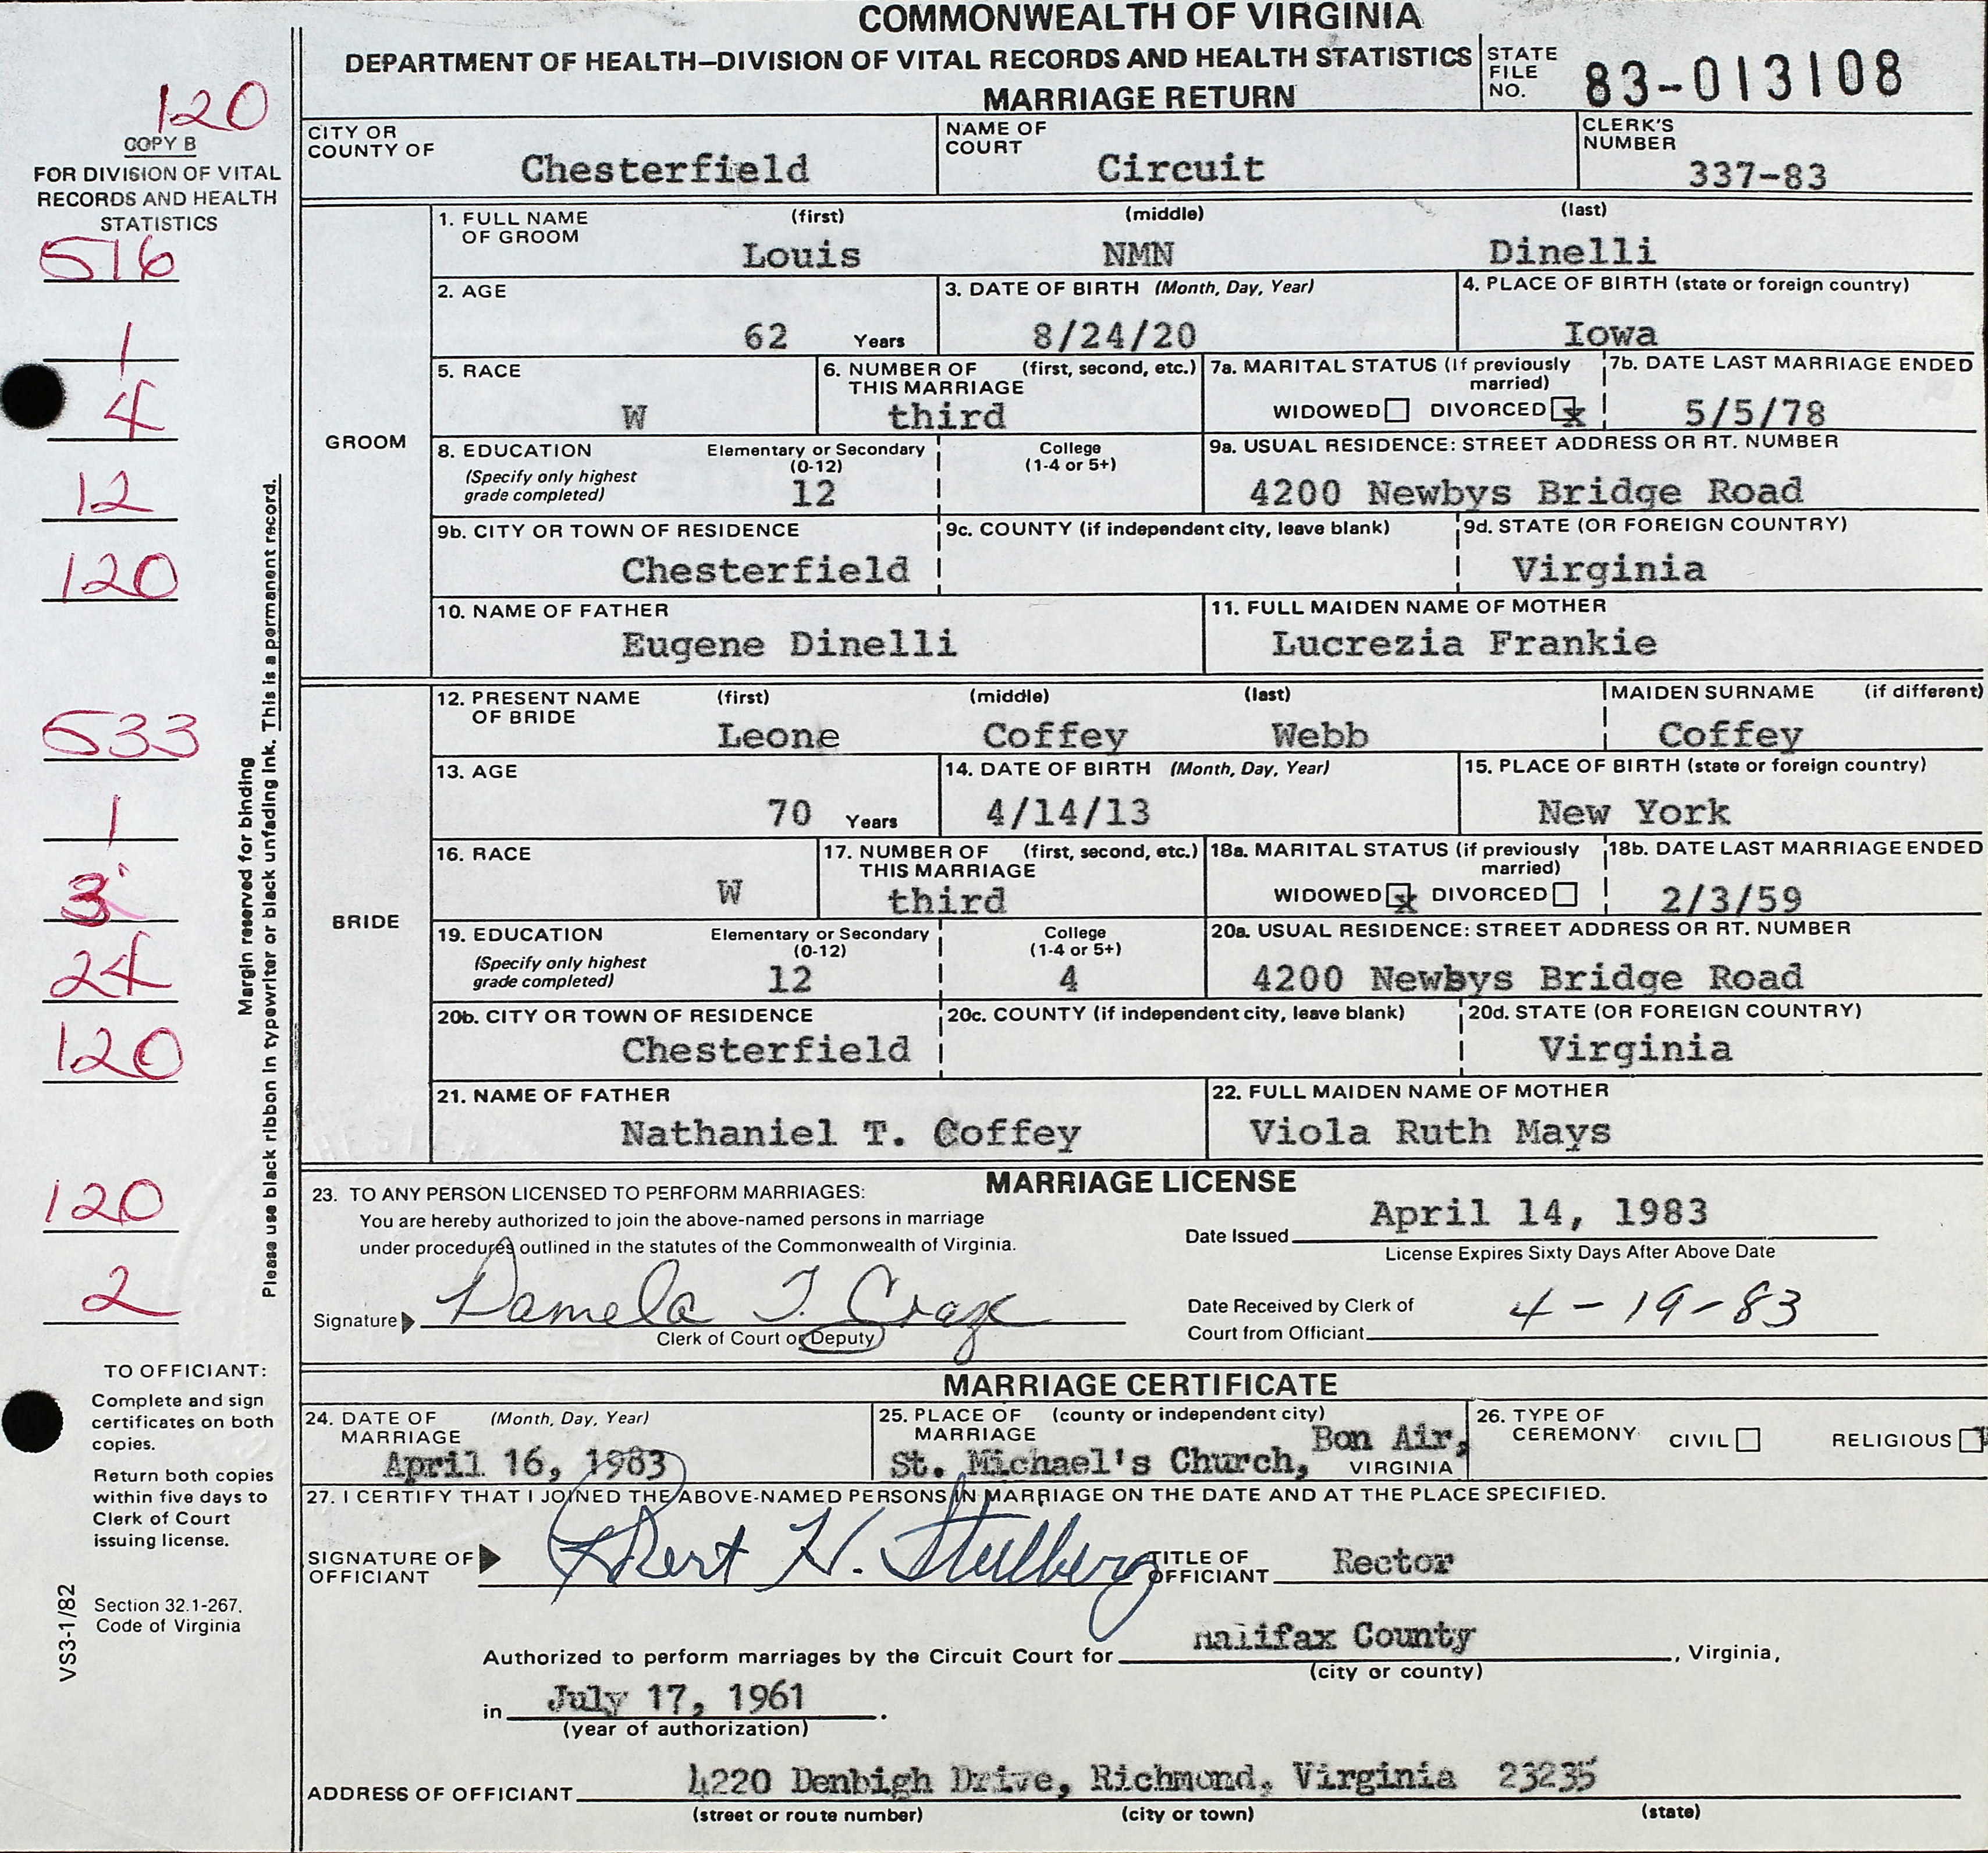 COMMONWEALTH OF VIRGINIA
DEPARTMENT OF HEALTH—DIVISION OF VITAL RECORDS AND HEALTH STATISTICS
MARRIAGE RETURN
STATE FILE NO. 83-013108
120
COPY B
FOR DIVISION OF VITAL
RECORDS AND HEALTH
STATISTICS
516
1
4
12
120
533
1
3
24
120
120
2
Margin reserved for binding
Please use black ribbon in typewriter or black unfading ink. This is a permanent record.
CITY OR COUNTY OF Chesterfield
NAME OF COURT Circuit
CLERK'S NUMBER 337-83
GROOM
1. FULL NAME OF GROOM (first) (middle) (last)
Louis NMN Dinelli
2. AGE 62 Years
3. DATE OF BIRTH (Month, Day, Year) 8/24/20
4. PLACE OF BIRTH (state or foreign country) Iowa
5. RACE W
6. NUMBER OF THIS MARRIAGE (first, second, etc.) third
7a. MARITAL STATUS (If previously married)
WIDOWED DIVORCED x
7b. DATE LAST MARRIAGE ENDED 5/5/78
8. EDUCATION (Specify only highest grade completed)
Elementary or Secondary (0-12) 12
College (1-4 or 5+)
9a. USUAL RESIDENCE: STREET ADDRESS OR RT. NUMBER
4200 Newbys Bridge Road
9b. CITY OR TOWN OF RESIDENCE Chesterfield
9c. COUNTY (if independent city, leave blank)
9d. STATE (OR FOREIGN COUNTRY) Virginia
10. NAME OF FATHER Eugene Dinelli
11. FULL MAIDEN NAME OF MOTHER Lucrezia Frankie
BRIDE
12. PRESENT NAME OF BRIDE (first) (middle) (last) MAIDEN SURNAME (if different)
Leone Coffey Webb Coffey
13. AGE 70 Years
14. DATE OF BIRTH (Month, Day, Year) 4/14/13
15. PLACE OF BIRTH (state or foreign country) New York
16. RACE W
17. NUMBER OF THIS MARRIAGE (first, second, etc.) third
18a. MARITAL STATUS (if previously married)
WIDOWED x DIVORCED
18b. DATE LAST MARRIAGE ENDED 2/3/59
19. EDUCATION (Specify only highest grade completed)
Elementary or Secondary (0-12) 12
College (1-4 or 5+) 4
20a. USUAL RESIDENCE: STREET ADDRESS OR RT. NUMBER
4200 Newbys Bridge Road
20b. CITY OR TOWN OF RESIDENCE Chesterfield
20c. COUNTY (if independent city, leave blank)
20d. STATE (OR FOREIGN COUNTRY) Virginia
21. NAME OF FATHER Nathaniel T. Coffey
22. FULL MAIDEN NAME OF MOTHER Viola Ruth Mays
MARRIAGE LICENSE
23. TO ANY PERSON LICENSED TO PERFORM MARRIAGES:
You are hereby authorized to join the above-named persons in marriage
under procedures outlined in the statutes of the Commonwealth of Virginia.
Date Issued April 14, 1983
License Expires Sixty Days After Above Date
Signature Pamela T.
Clerk of Court or Deputy
Date Received by Clerk of
Court from Officiant 4-19-83
TO OFFICIANT:
Complete and sign
certificates on both
copies.
Return both copies
within five days to
Clerk of Court
issuing license.
Section 32.1-267,
Code of Virginia
VS3-1/82
MARRIAGE CERTIFICATE
24. DATE OF MARRIAGE (Month, Day, Year)
April 16, 1983
25. PLACE OF MARRIAGE (county or independent city)
St. Michael's Church, Bon Air, VIRGINIA
26. TYPE OF CEREMONY CIVIL RELIGIOUS
27. I CERTIFY THAT I JOINED THE ABOVE-NAMED PERSONS IN MARRIAGE ON THE DATE AND AT THE PLACE SPECIFIED.
SIGNATURE OF OFFICIANT H.
TITLE OF OFFICIANT Rector
Authorized to perform marriages by the Circuit Court for Halifax County, Virginia,
(city or county)
in July 17, 1961.
(year of authorization)
ADDRESS OF OFFICIANT 4220 Denbigh Drive, Richmond, Virginia 23235
(street or route number) (city or town) (state)